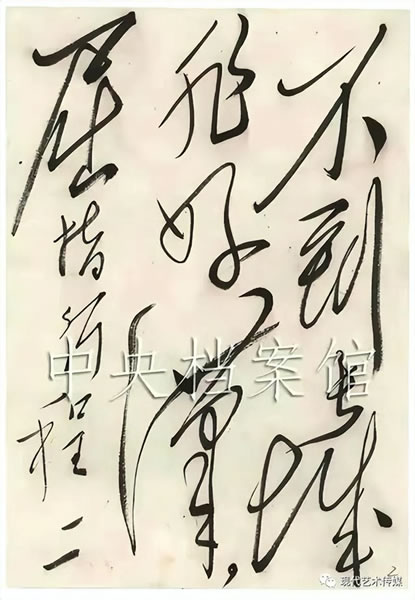 不到長城
非好漢，
屈指行程二
中央档案馆
现代艺术传媒